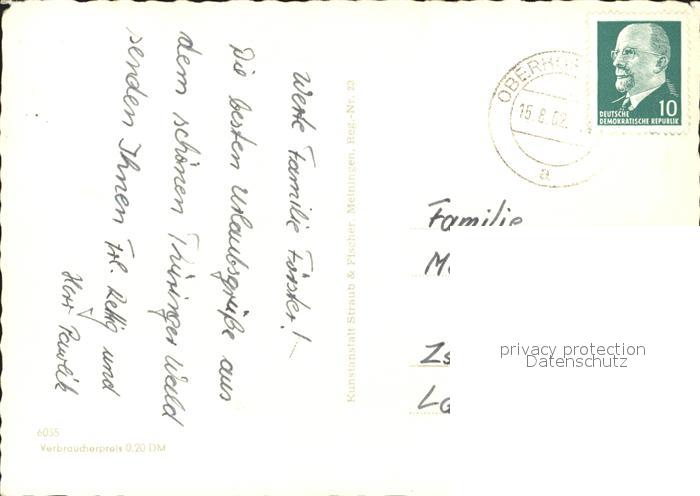 Werte Familie Förster! –
Die besten Urlaubsgrüße aus
dem schönen Thüringer Wald
senden Ihnen Frl. Rettig und
Herr Pawlik
Kunstanstalt Straub & Fischer, Meiningen, Reg.-Nr. 23
6055
Verbraucherpreis 0,20 DM
15.8.62
a
10
DEUTSCHE
DEMOKRATISCHE REPUBLIK
Familie
privacy protection
Datenschutz